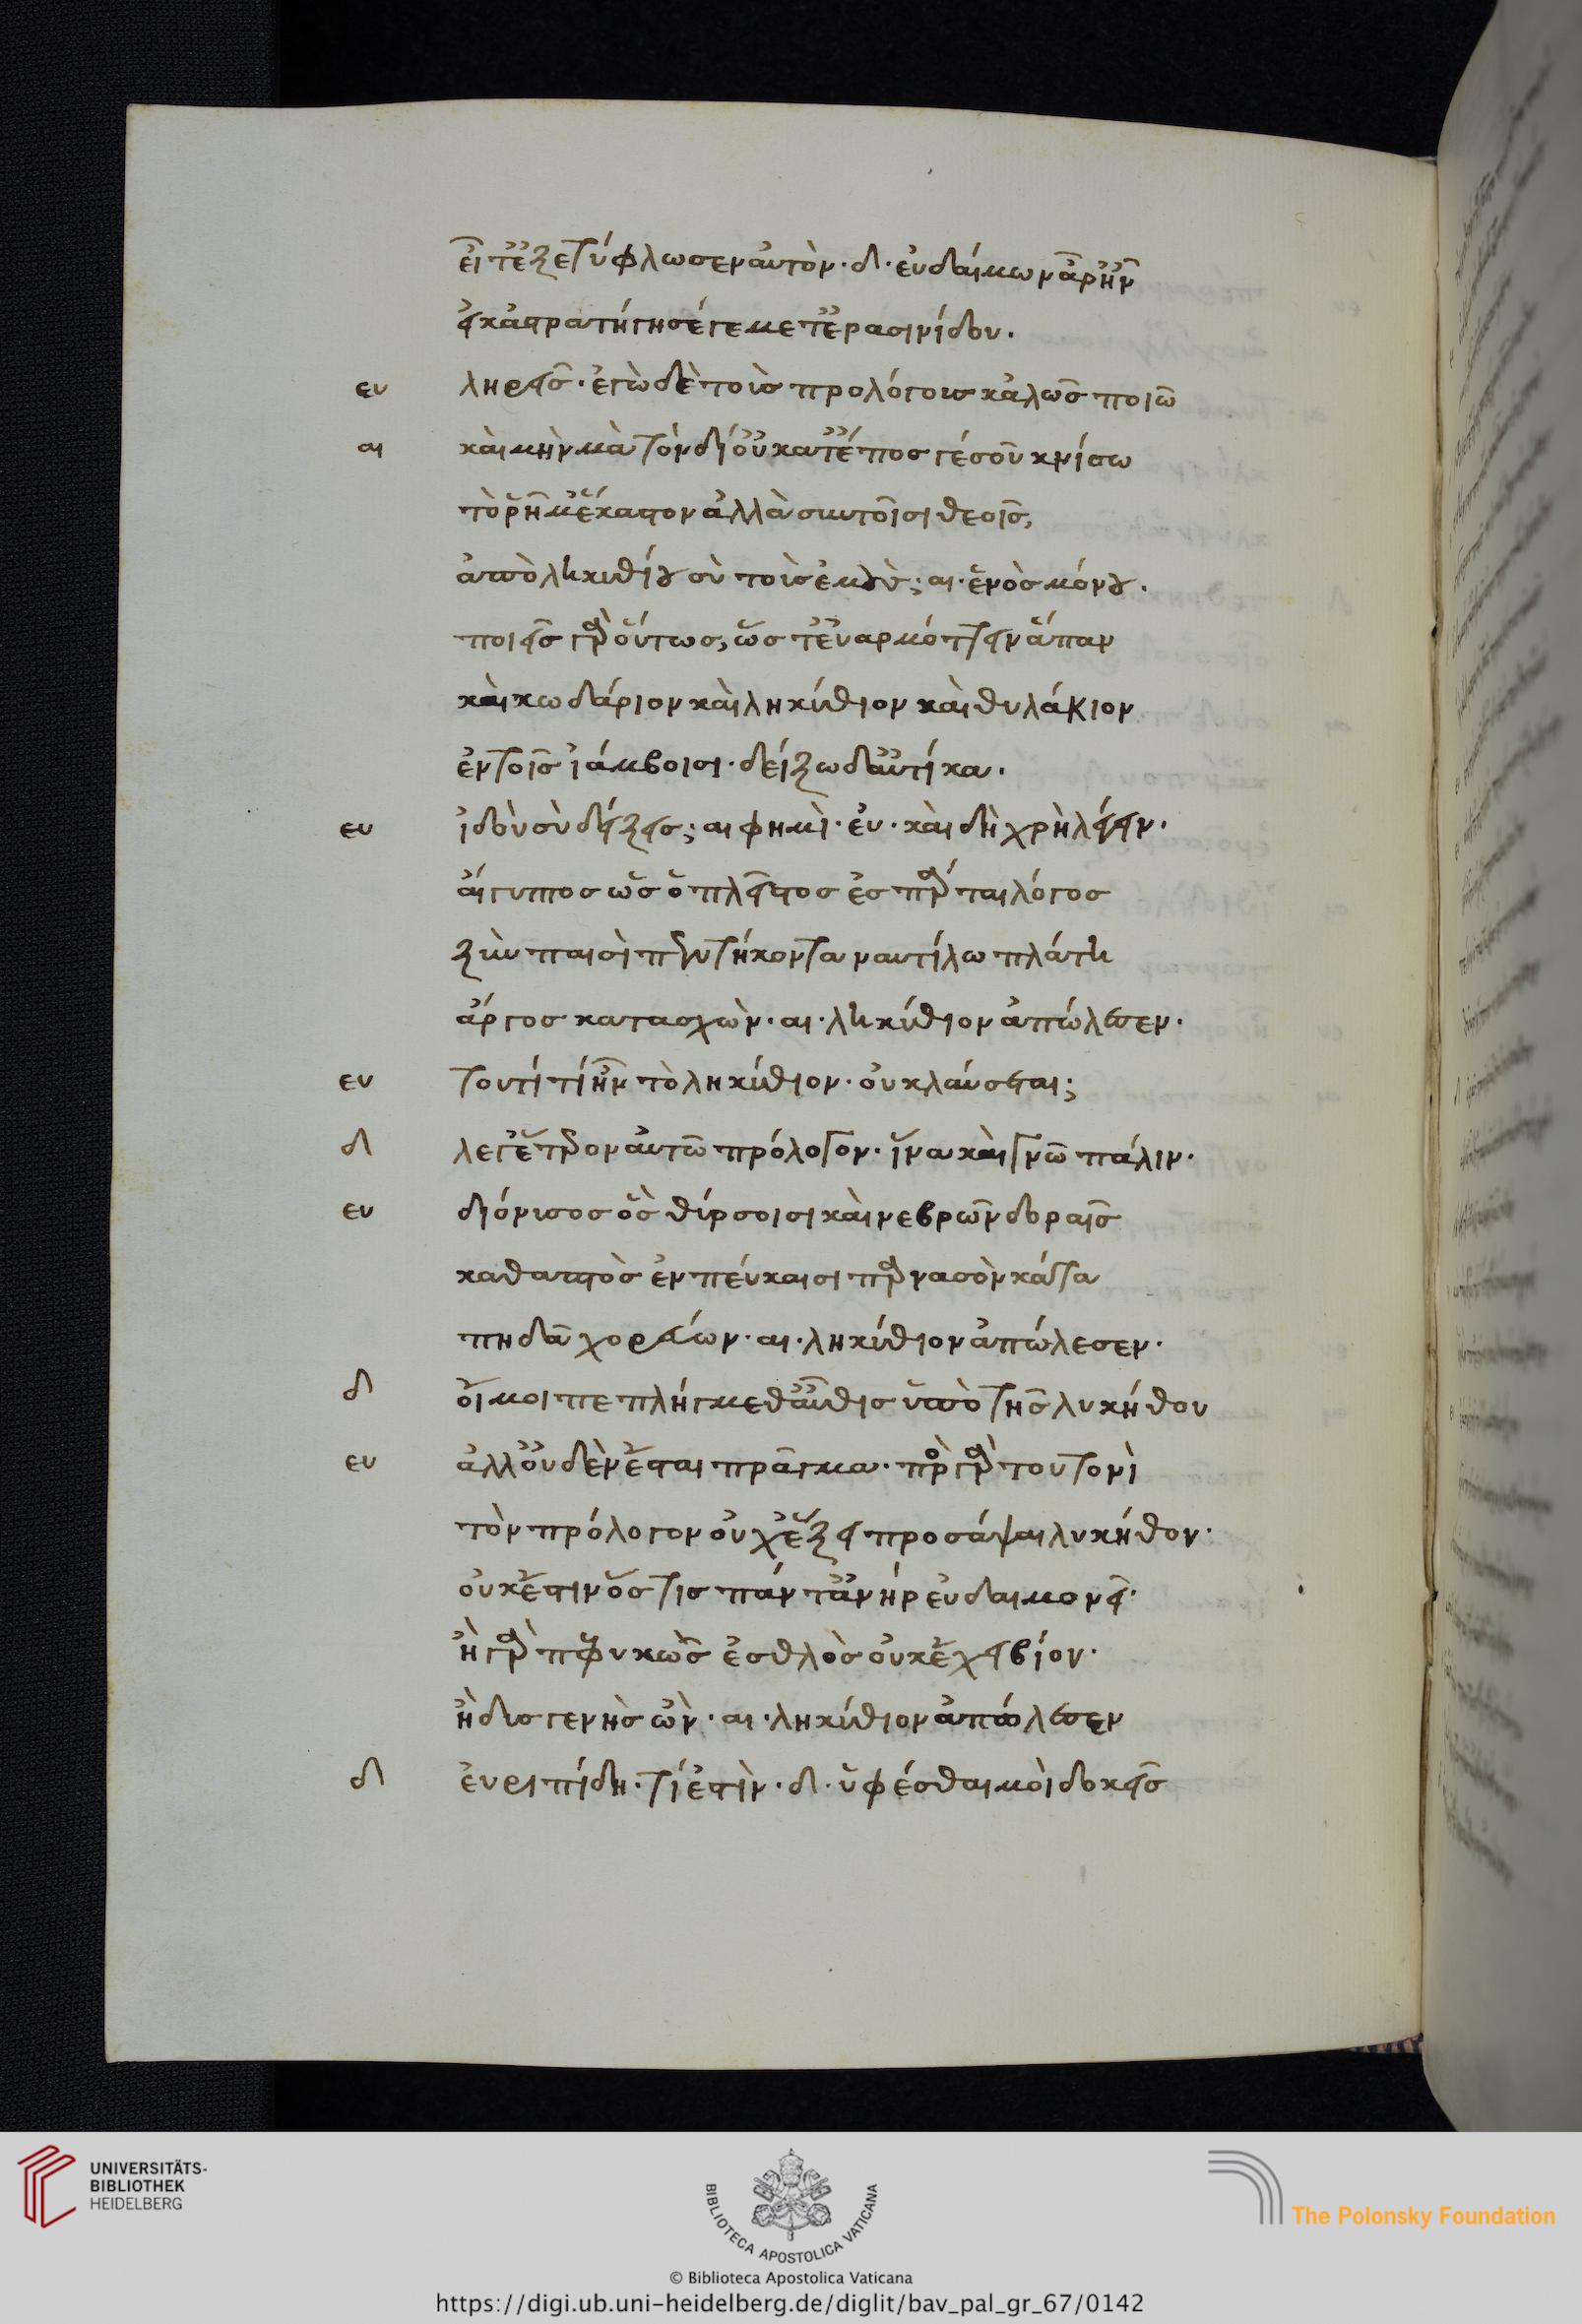 εἶτ' ἐξετύφλωσεν αὐτόν· δι· εὐδαίμων ἆρ' ἦν
εἰ κἀστρατήγησέ γε μετ' ἐρασινίδου.
ευ ληρεῖς· ἐγὼ δὲ τοὺς προλόγους καλῶς ποιῶ
αι καὶ μὴν μὰ τὸν δί' οὐ κατ' ἔπος γέ σου κνίσω
τὸ ῥῆμ' ἕκαστον ἀλλὰ σὺν τοῖσι θεοῖς,
ἀπὸ ληκυθίου σὺ τοὺς ἐμούς; αι· ἑνὸς μόνου.
ποιεῖς γὰρ οὕτως, ὥστ' ἐναρμόττειν ἅπαν
καὶ κωδάριον καὶ ληκύθιον καὶ θυλάκιον
ἐν τοῖς ἰάμβοισι· δείξω δ' αὐτίκα.
ευ ἰδοὺ σὺ δείξεις; αι φημί· ευ· καὶ δὴ χρὴ λέγειν·
αἴγυπτος ὡς ὁ πλεῖστος ἔσπαρται λόγος
ξὺν παισὶ πεντήκοντα ναυτίλω πλάτη
ἄργος κατασχών· αι· ληκύθιον ἀπώλεσεν·
ευ τουτὶ τί ἦν τὸ ληκύθιον· οὐ κλαύσεται;
δι λέγ' ἕτερον αὐτῶ πρόλογον· ἵνα καὶ γνῶ πάλιν·
ευ διόνισος ὃς θίρσοισι καὶ νεβρῶν δοραῖς
καθαπτὸς ἐν πεύκαισι παρνασὸν κάτα
πηδᾶ χορεύων· αι· ληκύθιον ἀπώλεσεν·
δι οἴμοι πεπλήγμεθ' αὖθις ὑπὸ τῆς λυκήθου
ευ ἀλλ' οὐδὲν ἔσται πρᾶγμα· πρὸς γὰρ τουτονὶ
τὸν πρόλογον οὐχ ἕξει προσάψαι λυκήθον·
οὐκ ἔστιν ὅστις πάντ' ἀνὴρ εὐδαιμονεῖ·
ἢ γὰρ πεφυκὼς ἐσθλὸς οὐκ ἔχει βίον·
ἢ δυσγενὴς ὤν· αι· ληκύθιον ἀπώλεσεν
δι ἐυριπίδη· τί ἐστίν· δι· ὑφέσθαι μοὶ δοκεῖς
UNIVERSITÄTS-
BIBLIOTHEK
HEIDELBERG
BIBLIOTECA APOSTOLICA VATICANA
The Polonsky Foundation
© Biblioteca Apostolica Vaticana
https://digi.ub.uni-heidelberg.de/diglit/bav_pal_gr_67/0142